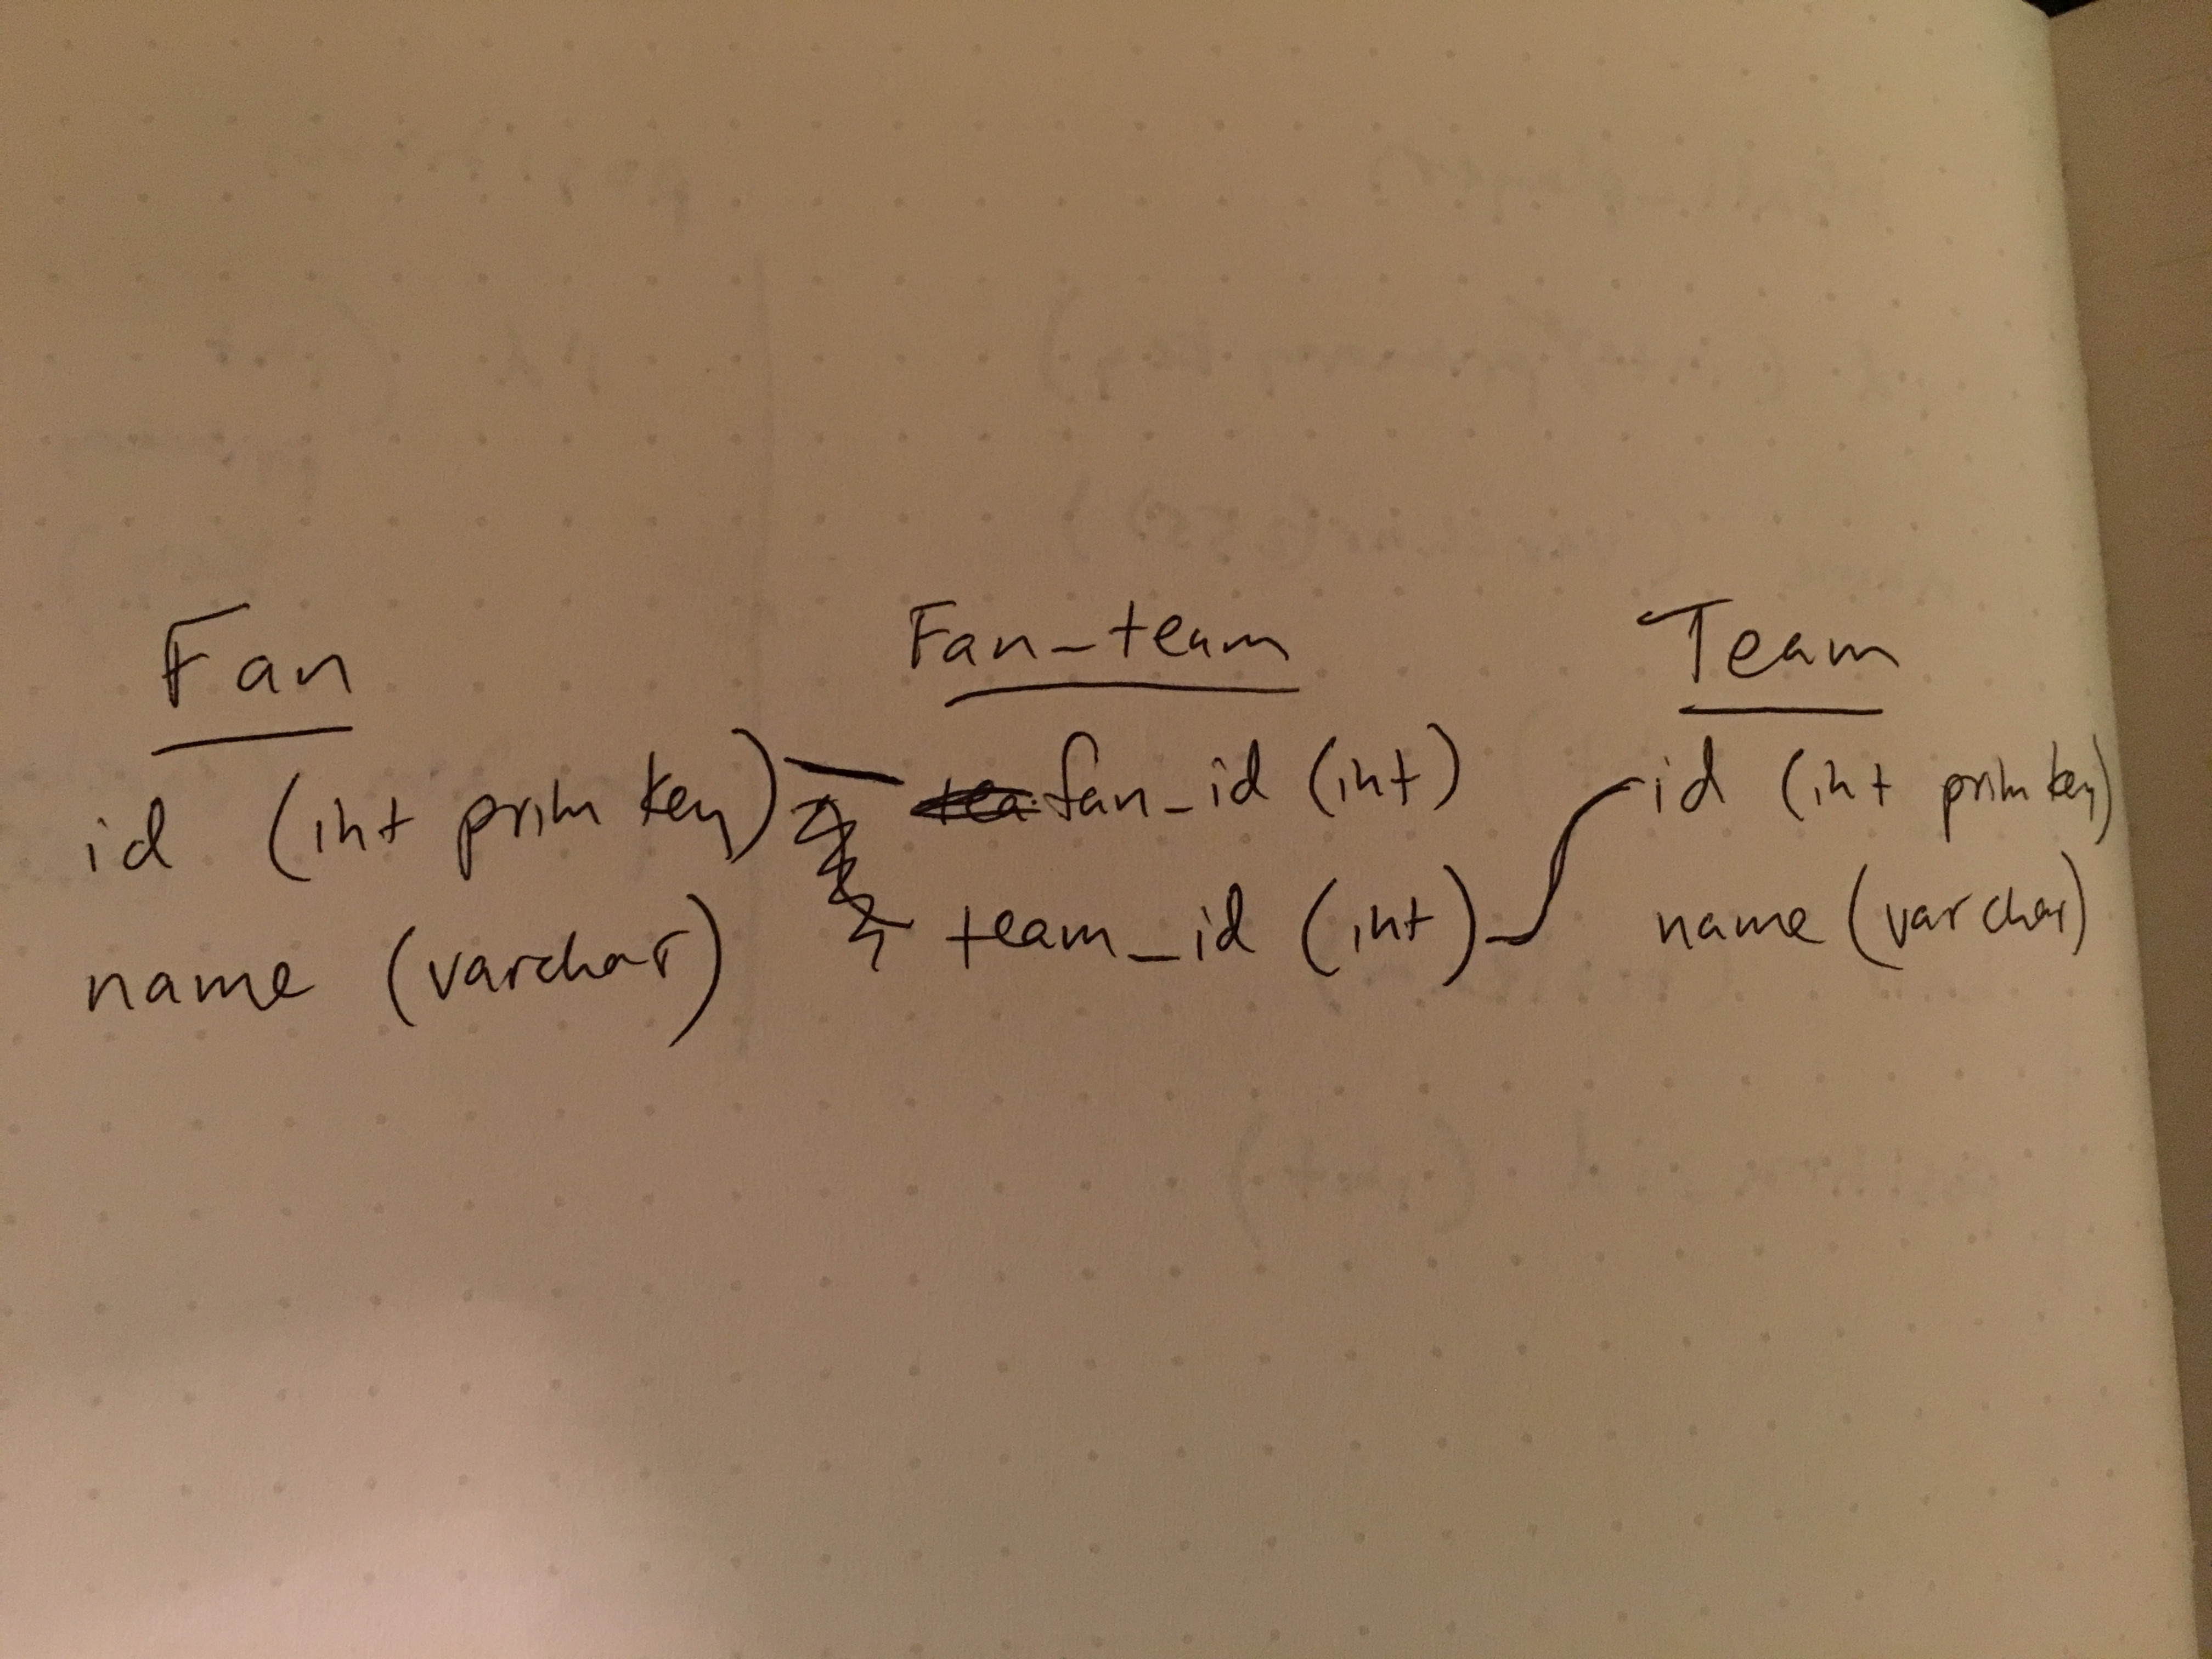 Fan
id (int prim key)
name (varchar)
Fan_team
fan_id (int)
team_id (int)
Team
id (int prim key)
name (varchar)